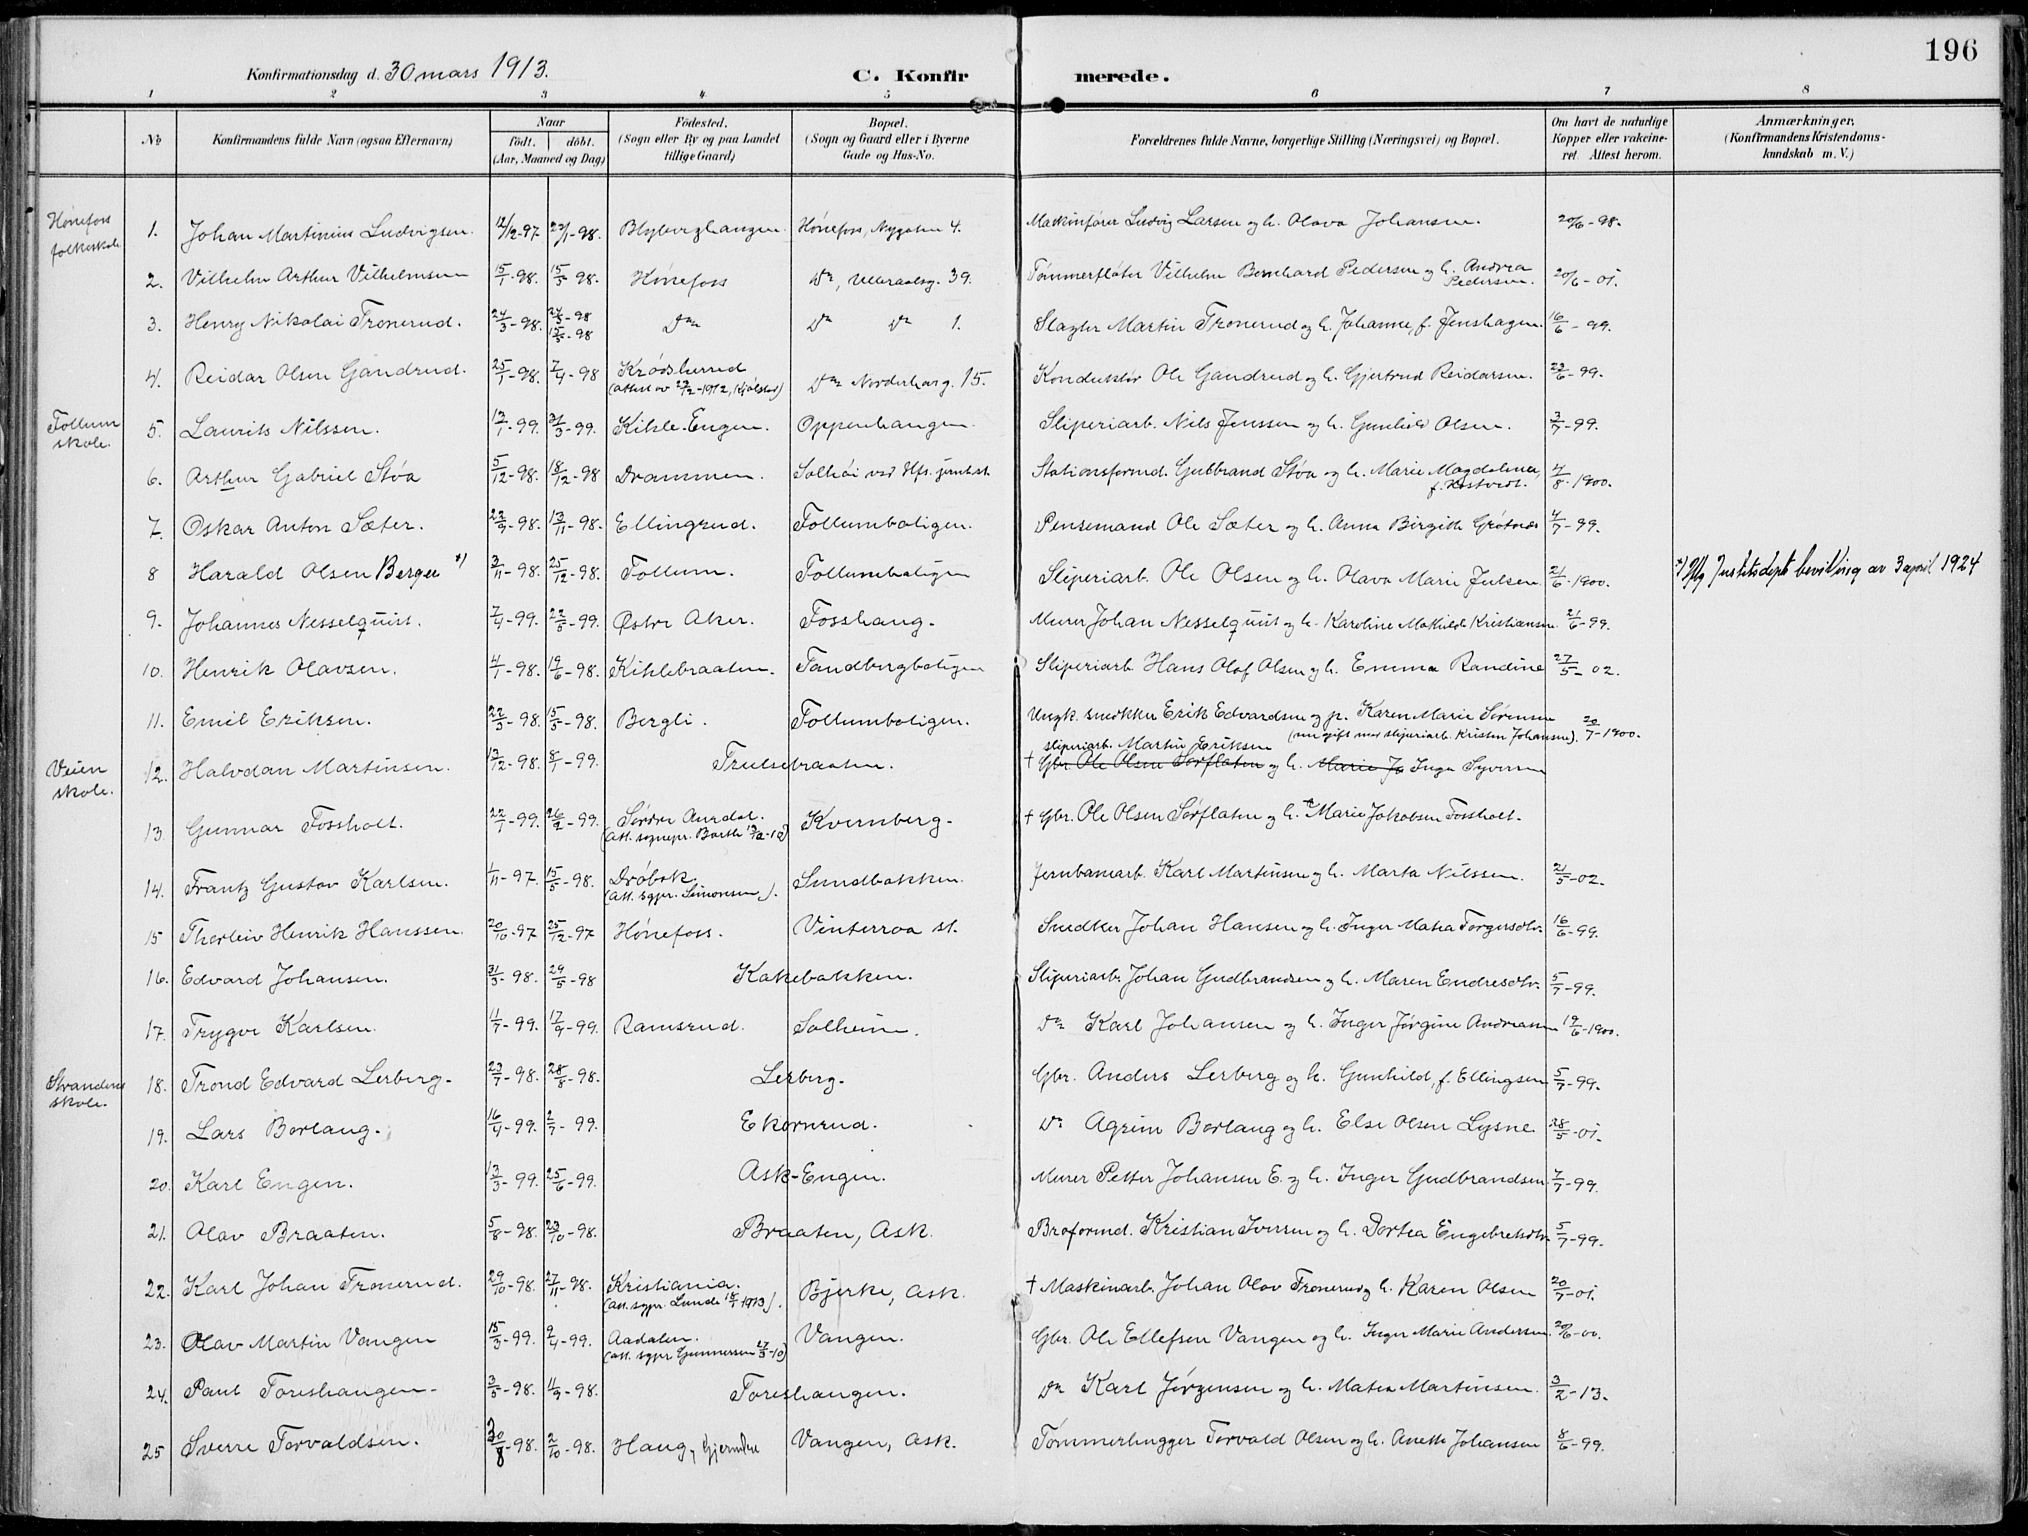 196
Konfirmationsdag d. 30 mars 1913.
C. Konfirmerede.
1 2 3 4 5 6 7 8
No
Konfirmandens fulde Navn (ogsaa Efternavn)
Naar
født. døbt.
(Aar, Maaned og Dag)
Fødested.
(Sogn eller By og paa Landet
tillige Gaard)
Bopæl.
(Sogn og Gaard eller i Byerne
Gade og Hus-No.
Forældrenes fulde Navne, borgerlige Stilling (Næringsvei) og Bopæl.
Om havt de naturlige
Kopper eller vakcine-
ret. Attest herom.
Anmærkninger.
(Konfirmandens Kristendoms-
kundskab m. V.)
Hønefoss
folkeskole
1. Johan Martinius Ludvigsen. 12/12-97 23/1-98. Blyberghaugen. Hønefoss, Nygaten 4. Maskinfører Ludvig Larsen og h. Olava Johansen. 20/6-98.
2. Vilhelm Arthur Vilhelmsen 15/1-98. 15/5-98. Hønefoss Do, Ulleraalsg. 39. Tømmerfløter Vilhelm Bernhard Pedersen og h. Andrea
Pedersen. 20/6-01.
3. Henry Nikolai Tronerud. 24/3-98. 24/3-98
15/5-98 Do Do Do 1. Slagter Martin Tronerud og h. Johanne, f. Jenshagen. 16/6-99.
4. Reidar Olsen Gandrud. 25/1-98. 7/4-98 Krødsherred
(attest av 27/2-1912, Kjølstad) Do Norderhovg. 15. Konduktør Ole Gandrud og h. Gjertrud Reidarsen. 23/6-99.
Follum
skole.
5. Laurits Nilssen. 13/1-99. 31/3-99. Kihle-Engen. Oppenhaugen. Sliperiarb. Nils Jenssen og h. Gunhild Olsen. 3/7-99.
6. Arthur Gabriel Støa 5/12-98. 18/12-98 Drammen. Solhøi ved Hfs. jernb.st. Stationsformd. Gulbrand Støa og h. Marie Magdalena,
4/8-1900.
7. Oskar Anton Sæter. 22/9-98. 13/11-98. Ellingsrud. Follumboligen. Pensemand Ole Sæter og h. Anna Birgith Grøtnes 4/7-99.
8 Harald Olsen Berger *) 3/11-98. 25/12-98. Follum. Follumboligen Sliperiarb. Ole Olsen og h. Olava Marie Julsen 21/6-1900. *) Iflg Justitsdepts bevilling av 3 april 1924
9. Johannes Nesselquist. 7/4-99. 22/5-99. Østre Aker. Fosshaug. Murer Johan Nesselquist og h. Karoline Mathilde Kristiansen 21/6-99.
10. Henrik Olavsen. 4/1-98. 19/6-98. Kihlebraaten. Tandbergboligen Sliperiarb. Hans Olaf Olsen og h. Emma Randine 27/5-02.
11. Emil Eriksen. 22/3-98. 15/5-98. Bergli. Follumboligen. Ungk. snekker Erik Edvardsen og p. Karen Marie Sørensen
(nu gift med sliperiarb. Kristen Johansen). 20/7-1900.
Veien
skole.
12. Halvdan Martinsen. 13/12-98. 8/1-99. Trulsebraaten. sliperiarb. Martin Eriksen
† Gbr. Ole Olsen Sørflaten og h. Marie Ja Inga Syversen
13. Gunnar Fossholt. 22/1-99. 26/2-99. Søndre Aurdal.
(Att. sognepr. Barth) Kvernberg. † Gbr. Ole Olsen Sørflaten og h. Marie Jakobsen Fossholt.
14. Frantz Gustav Karlsen. 1/11-97. 15/5-98. Drøbak.
(att. sgpr. Simonsen). Sundbakken. Jernbanearb. Karl Martinsen og h. Marta Nilssen. 21/5-02.
15 Thorleiv Henrik Hanssen. 20/10-97 25/12-97 Hønefoss. Vinterroa st. Snedker Johan Hansen og h. Inger Matea Torgersdtr. 16/6-99.
16. Edvard Johansen. 31/3-98. 29/5-98 Kakebakken. Sliperiarb. Johan Gudbrandsen og h. Maren Endresdtr. 5/7-99.
17. Trygve Karlsen. 11/7-99. 17/9-99. Ramsrud. Solheim. Do Karl Johansen og h. Inger Jørgine Andreasen 19/6-1900.
Strandens
skole.
18. Trond Edvard Lerberg. 23/7-98. 28/8-98. Lerberg. Gbr. Anders Lerberg og h. Gunhild, f. Ellingsen 5/7-99.
19. Lars Borlaug. 16/4-99. 2/7-99. Ekornrud. Do Agrim Borlaug og h. Else Olsen Lysne. 28/5-01.
20. Karl Engen. 13/3-99. 25/6-99. Ask-Engen. Murer Petter Johansen E. og h. Inger Gudbrandsen. 7/7-99.
21. Olav Braaten. 5/8-98. 23/10-98. Braaten, Ask. Broformd. Kristian Iversen og h. Dortea Engebretsdtr. 5/7-99.
22. Karl Johan Tronerud. 29/10-98. 27/11-98. Kristiania.
(att. sgpr. Lunde 18/1 1913). Bjerke, Ask. † Maskinarb. Johan Olav Tronerud og h. Karen Olsen 20/7-01.
23. Olav Martin Vangen 15/3-99. 9/4-99. Aadalen.
(att. sgpr Gunnersen 27/3-10) Vangen. Gbr. Ole Ellefsen Vangen og h. Inger Marie Andersen. 20/6-00.
24. Paul Toreshaugen. 3/5-98. 11/9-98. Toreshaugen. Do Karl Jørgensen og h. Matea Martinsen. 3/2-13.
25 Sverre Torvaldsen. 30/8-98. 2/10-98. Haug, Gjermdre Vangen, Ask. Tømmerhugger Torvald Olsen og h. Anette Johansen 8/6-99.